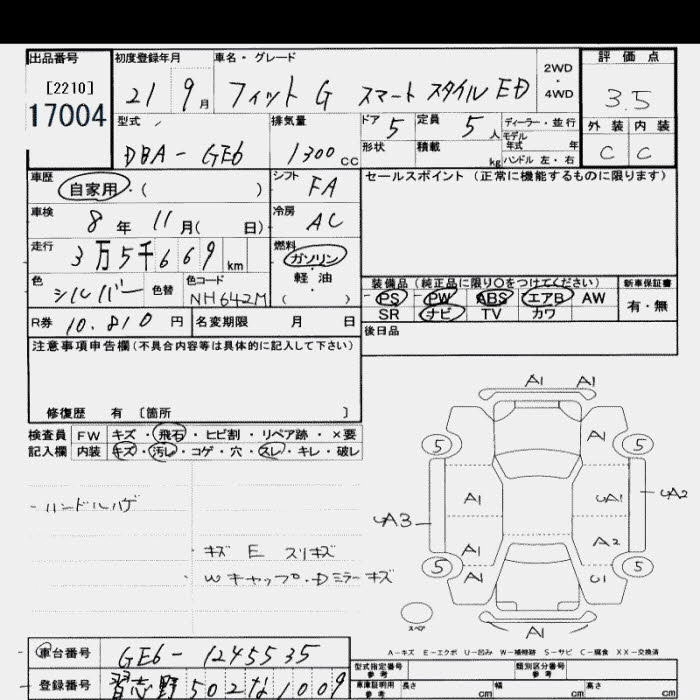 出品番号 初度登録年月 車名・グレード 2WD・4WD 評価点
[2210] 21 9月 フィット G スマート スタイル ED 3.5
17004 型式 排気量 ドア 5 定員 5人 ディーラー・並行 外装 内装
モデル年式 年
DBA-GE6 1300cc 形状 積載 kg ハンドル 左・右 C C
車歴 自家用・( ) シフト FA セールスポイント(正常に機能するものに限ります)
車検 8年 11月( 日) 冷房 AC
走行 3万5千669km 燃料 ガソリン
色 シルバー 色替 色コード NH642M 軽油 ( )
装備品(純正品に限り○をつけてください) 新車保証書
PS PW ABS エアB AW 有・無
SR ナビ TV カワ
R券 10.810円 名変期限 月 日 後日品
注意事項申告欄(不具合内容等は具体的に記入して下さい)
修復歴 有 〔箇所 〕
検査員 FW キズ・飛石・ヒビ割・リペア跡・×要
記入欄 内装 キズ・汚レ・コゲ・穴・スレ・キレ・破レ
・ハンドルハゲ
・キズ E スリキズ
・Wキャップ・Dミラーキズ
A1 A1
A1
5 5
A1 A2
A3
A1 A2
5 5
A1 U1
A1
スペア
A-キズ E-エクボ U-凹み W-補修跡 S-サビ C-腐食 XX-交換済
車台番号 GE6-1245535
登録番号 習志野 502 な 1009
型式指定番号 参考 類別区分番号 参考
車庫証明用 参考 長さ cm 幅 cm 高さ cm